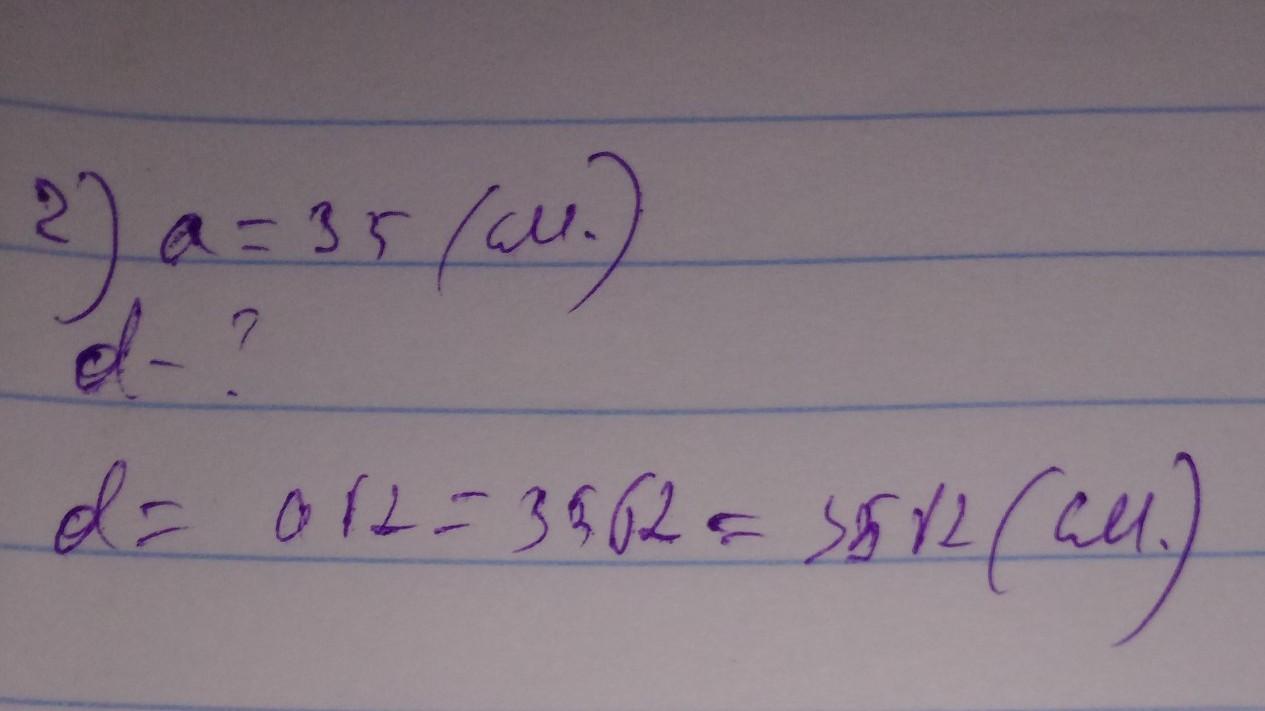 2) a = 35 (см.)
d - ?
d = a√2 = 35√2 = 35√2 (см.)